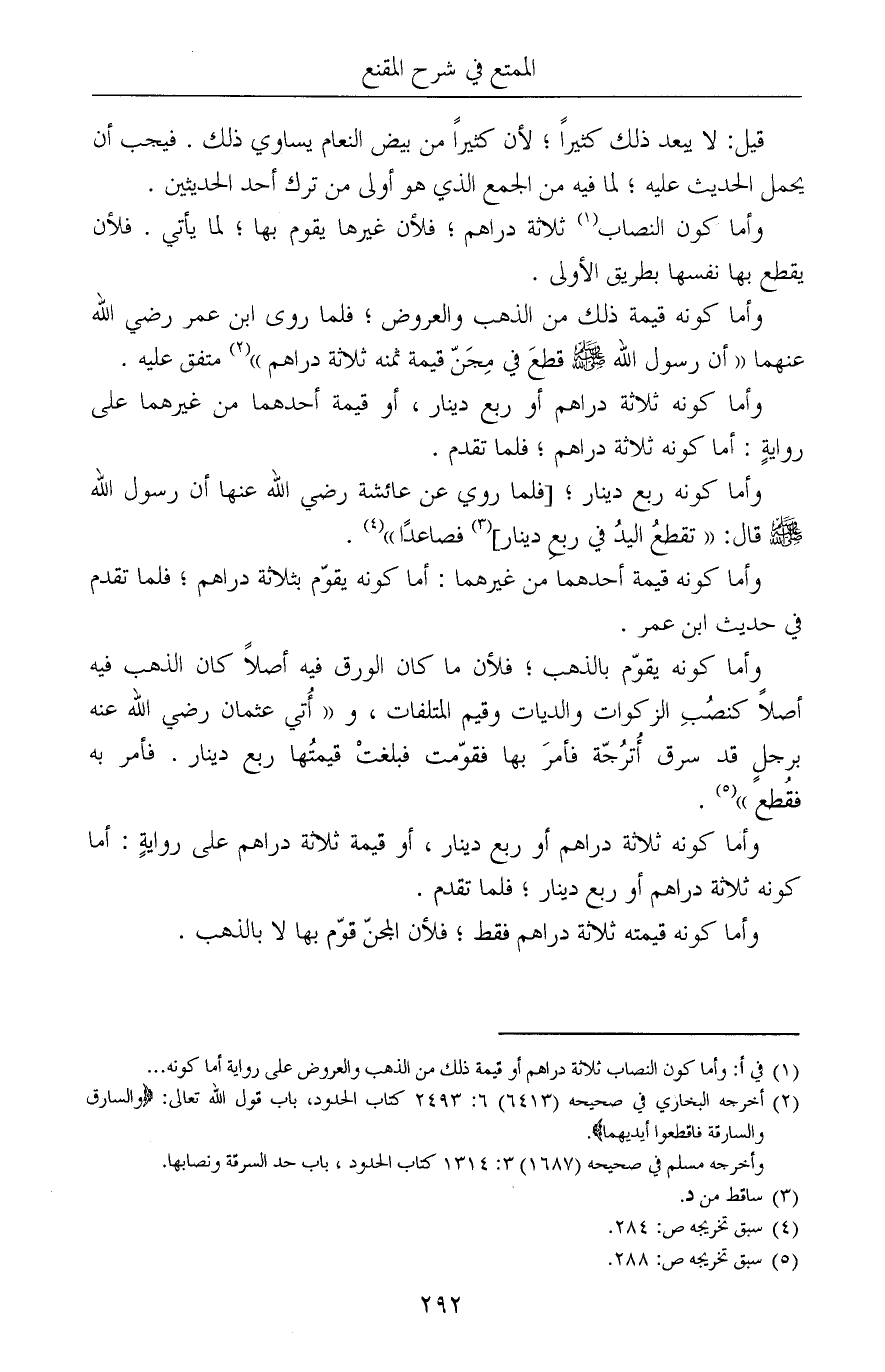 الممتع في شرح المقنع
قيل: لا يبعد ذلك كثيراً ؛ لأن كثيراً من بيض النعام يساوي ذلك . فيجب أن
يحمل الحديث عليه ؛ لما فيه من الجمع الذي هو أولى من ترك أحد الحديثين .
وأما كون النصاب(١) ثلاثة دراهم ؛ فلأن غيرها يقوم بها ؛ لما يأتي . فلأن
يقطع بها نفسها بطريق الأولى .
وأما كونه قيمة ذلك من الذهب والعروض ؛ فلما روى ابن عمر رضي الله
عنهما « أن رسول الله ﷺ قطعَ في مِجَنّ قيمة ثمنه ثلاثة دراهم »(٢) متفق عليه .
وأما كونه ثلاثة دراهم أو ربع دينار ، أو قيمة أحدهما من غيرهما على
روايةٍ : أما كونه ثلاثة دراهم ؛ فلما تقدم .
وأما كونه ربع دينار ؛ [فلما روي عن عائشة رضي الله عنها أن رسول الله
ﷺ قال: « تقطعُ اليدُ في ربعِ دينار](٣) فصاعدًا »(٤) .
وأما كونه قيمة أحدهما من غيرهما : أما كونه يقوّم بثلاثة دراهم ؛ فلما تقدم
في حديث ابن عمر .
وأما كونه يقوّم بالذهب ؛ فلأن ما كان الورق فيه أصلاً كان الذهب فيه
أصلاً كنصُبِ الزكوات والديات وقيم المتلفات ، و « أُتي عثمان رضي الله عنه
برجلٍ قد سرق أُترُجّة فأمرَ بها فقوّمت فبلغتْ قيمتُها ربع دينار . فأمر به
فقُطع »(٥) .
وأما كونه ثلاثة دراهم أو ربع دينار ، أو قيمة ثلاثة دراهم على روايةٍ : أما
كونه ثلاثة دراهم أو ربع دينار ؛ فلما تقدم .
وأما كونه قيمته ثلاثة دراهم فقط ؛ فلأن المجنّ قوّم بها لا بالذهب .
(١) في أ: وأما كون النصاب ثلاثة دراهم أو قيمة ذلك من الذهب والعروض على رواية أما كونه...
(٢) أخرجه البخاري في صحيحه (٦٤١٣) ٦: ٢٤٩٣ كتاب الحدود، باب قول الله تعالى: ﴿والسارق
والسارقة فاقطعوا أيديهما﴾.
وأخرجه مسلم في صحيحه (١٦٨٧) ٣: ١٣١٤ كتاب الحدود ، باب حد السرقة ونصابها.
(٣) ساقط من د.
(٤) سبق تخريجه ص: ٢٨٤.
(٥) سبق تخريجه ص: ٢٨٨.
٢٩٢